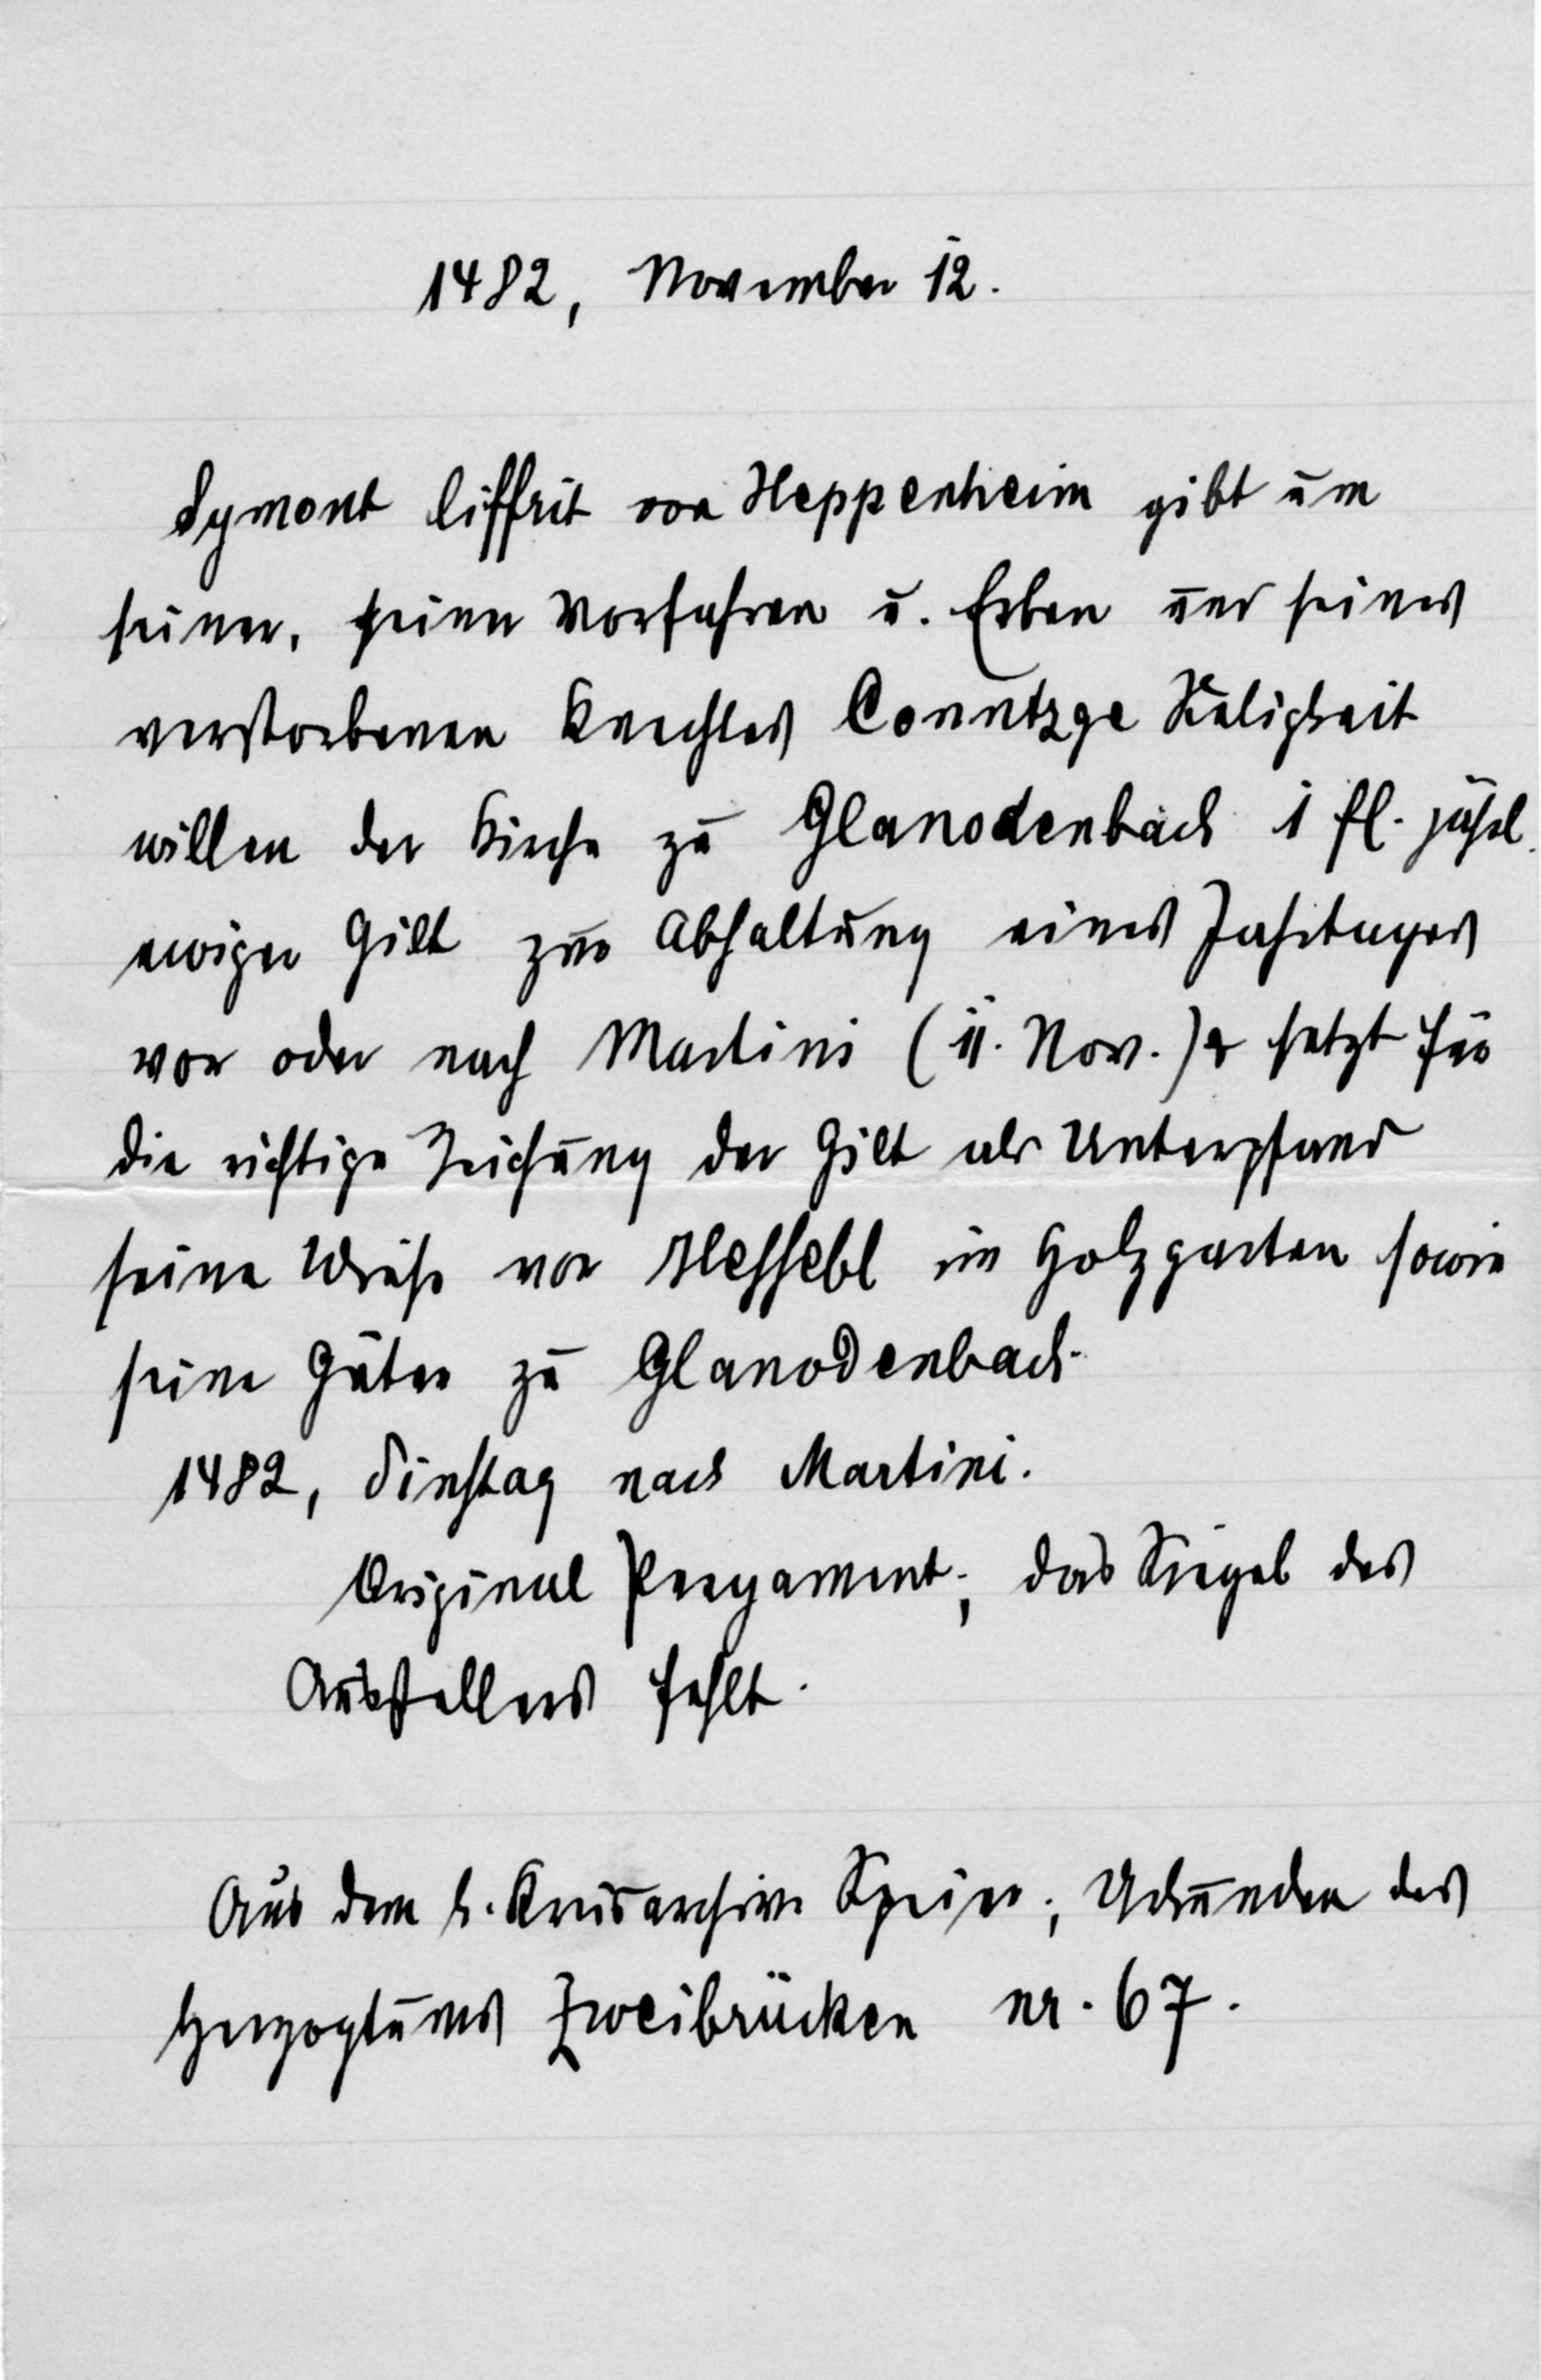 1482, November 12.
Symont Liffrit von Heppenheim gibt um
seiner, seiner Vorfahren u. Erben und seines
verstorbenen Knechtes Conntzge Seligkeit
willen der Kirche zu Glanodenbach 1 fl. jährl.
ewiger Gilt zur Abhaltung eines Jahrtages
vor oder nach Martini (11. Nov.) & setzt für
die richtige Reichung der Gilt als Unterpfand
seine Wiese vor Heſſebl im Holzgarten sowie
seine Güter zu Glanodenbach.
1482, Dinstag nach Martini.
Original Pergament; das Siegel des
Ausstellers fehlt.
Aus dem k. Kreisarchive Speier; Urkunden des
Herzogtums Zweibrücken nr. 67.